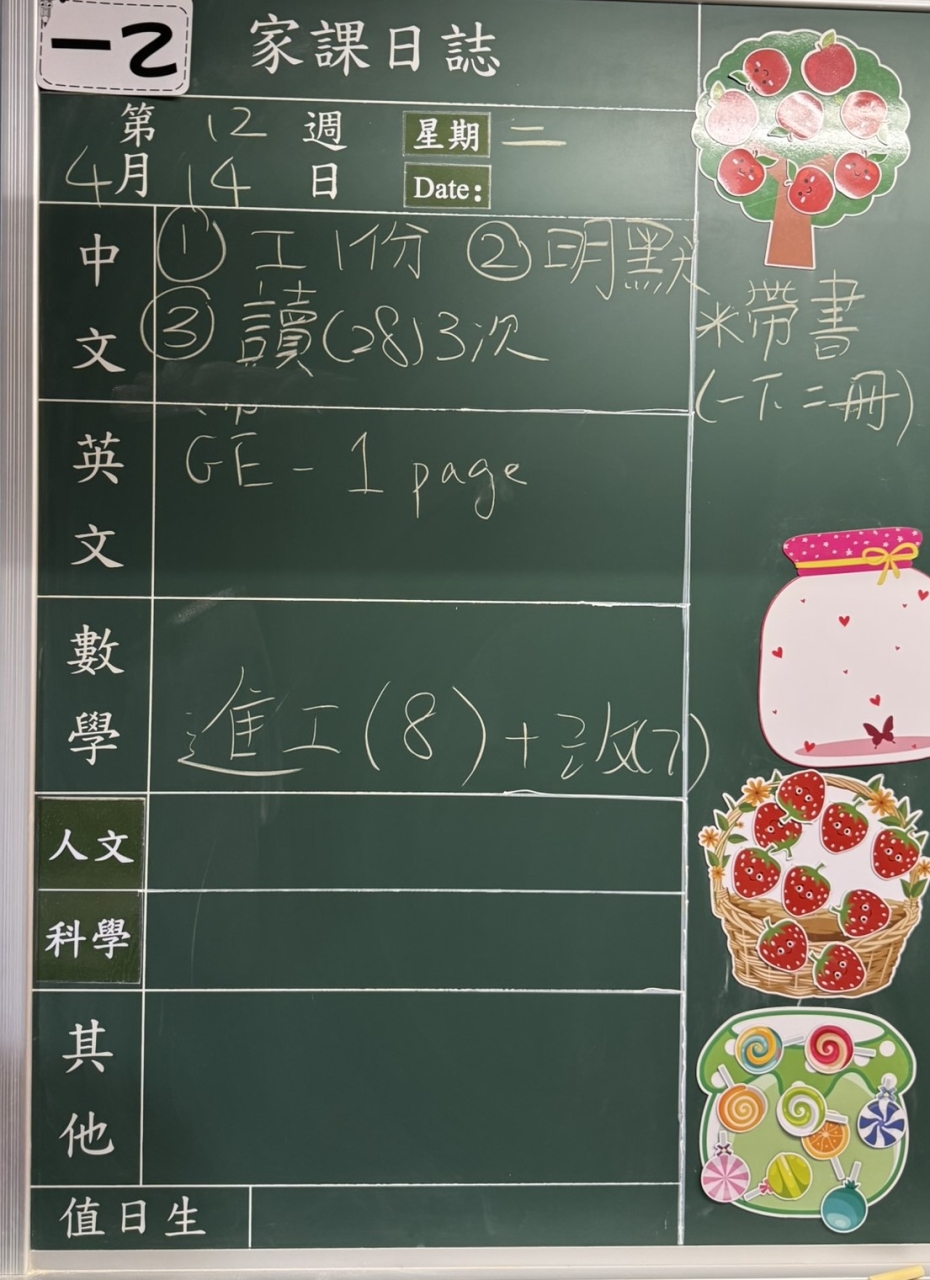 一2
家課日誌
第 12 週 星期 二
4月 14 日 Date:
中文
① 工1份 ② 明默
③ 讀(28)3次
※帶書
(一下二冊)
英文
GE - 1 page
數學
進工(8)+改(7)
人文
科學
其他
值日生